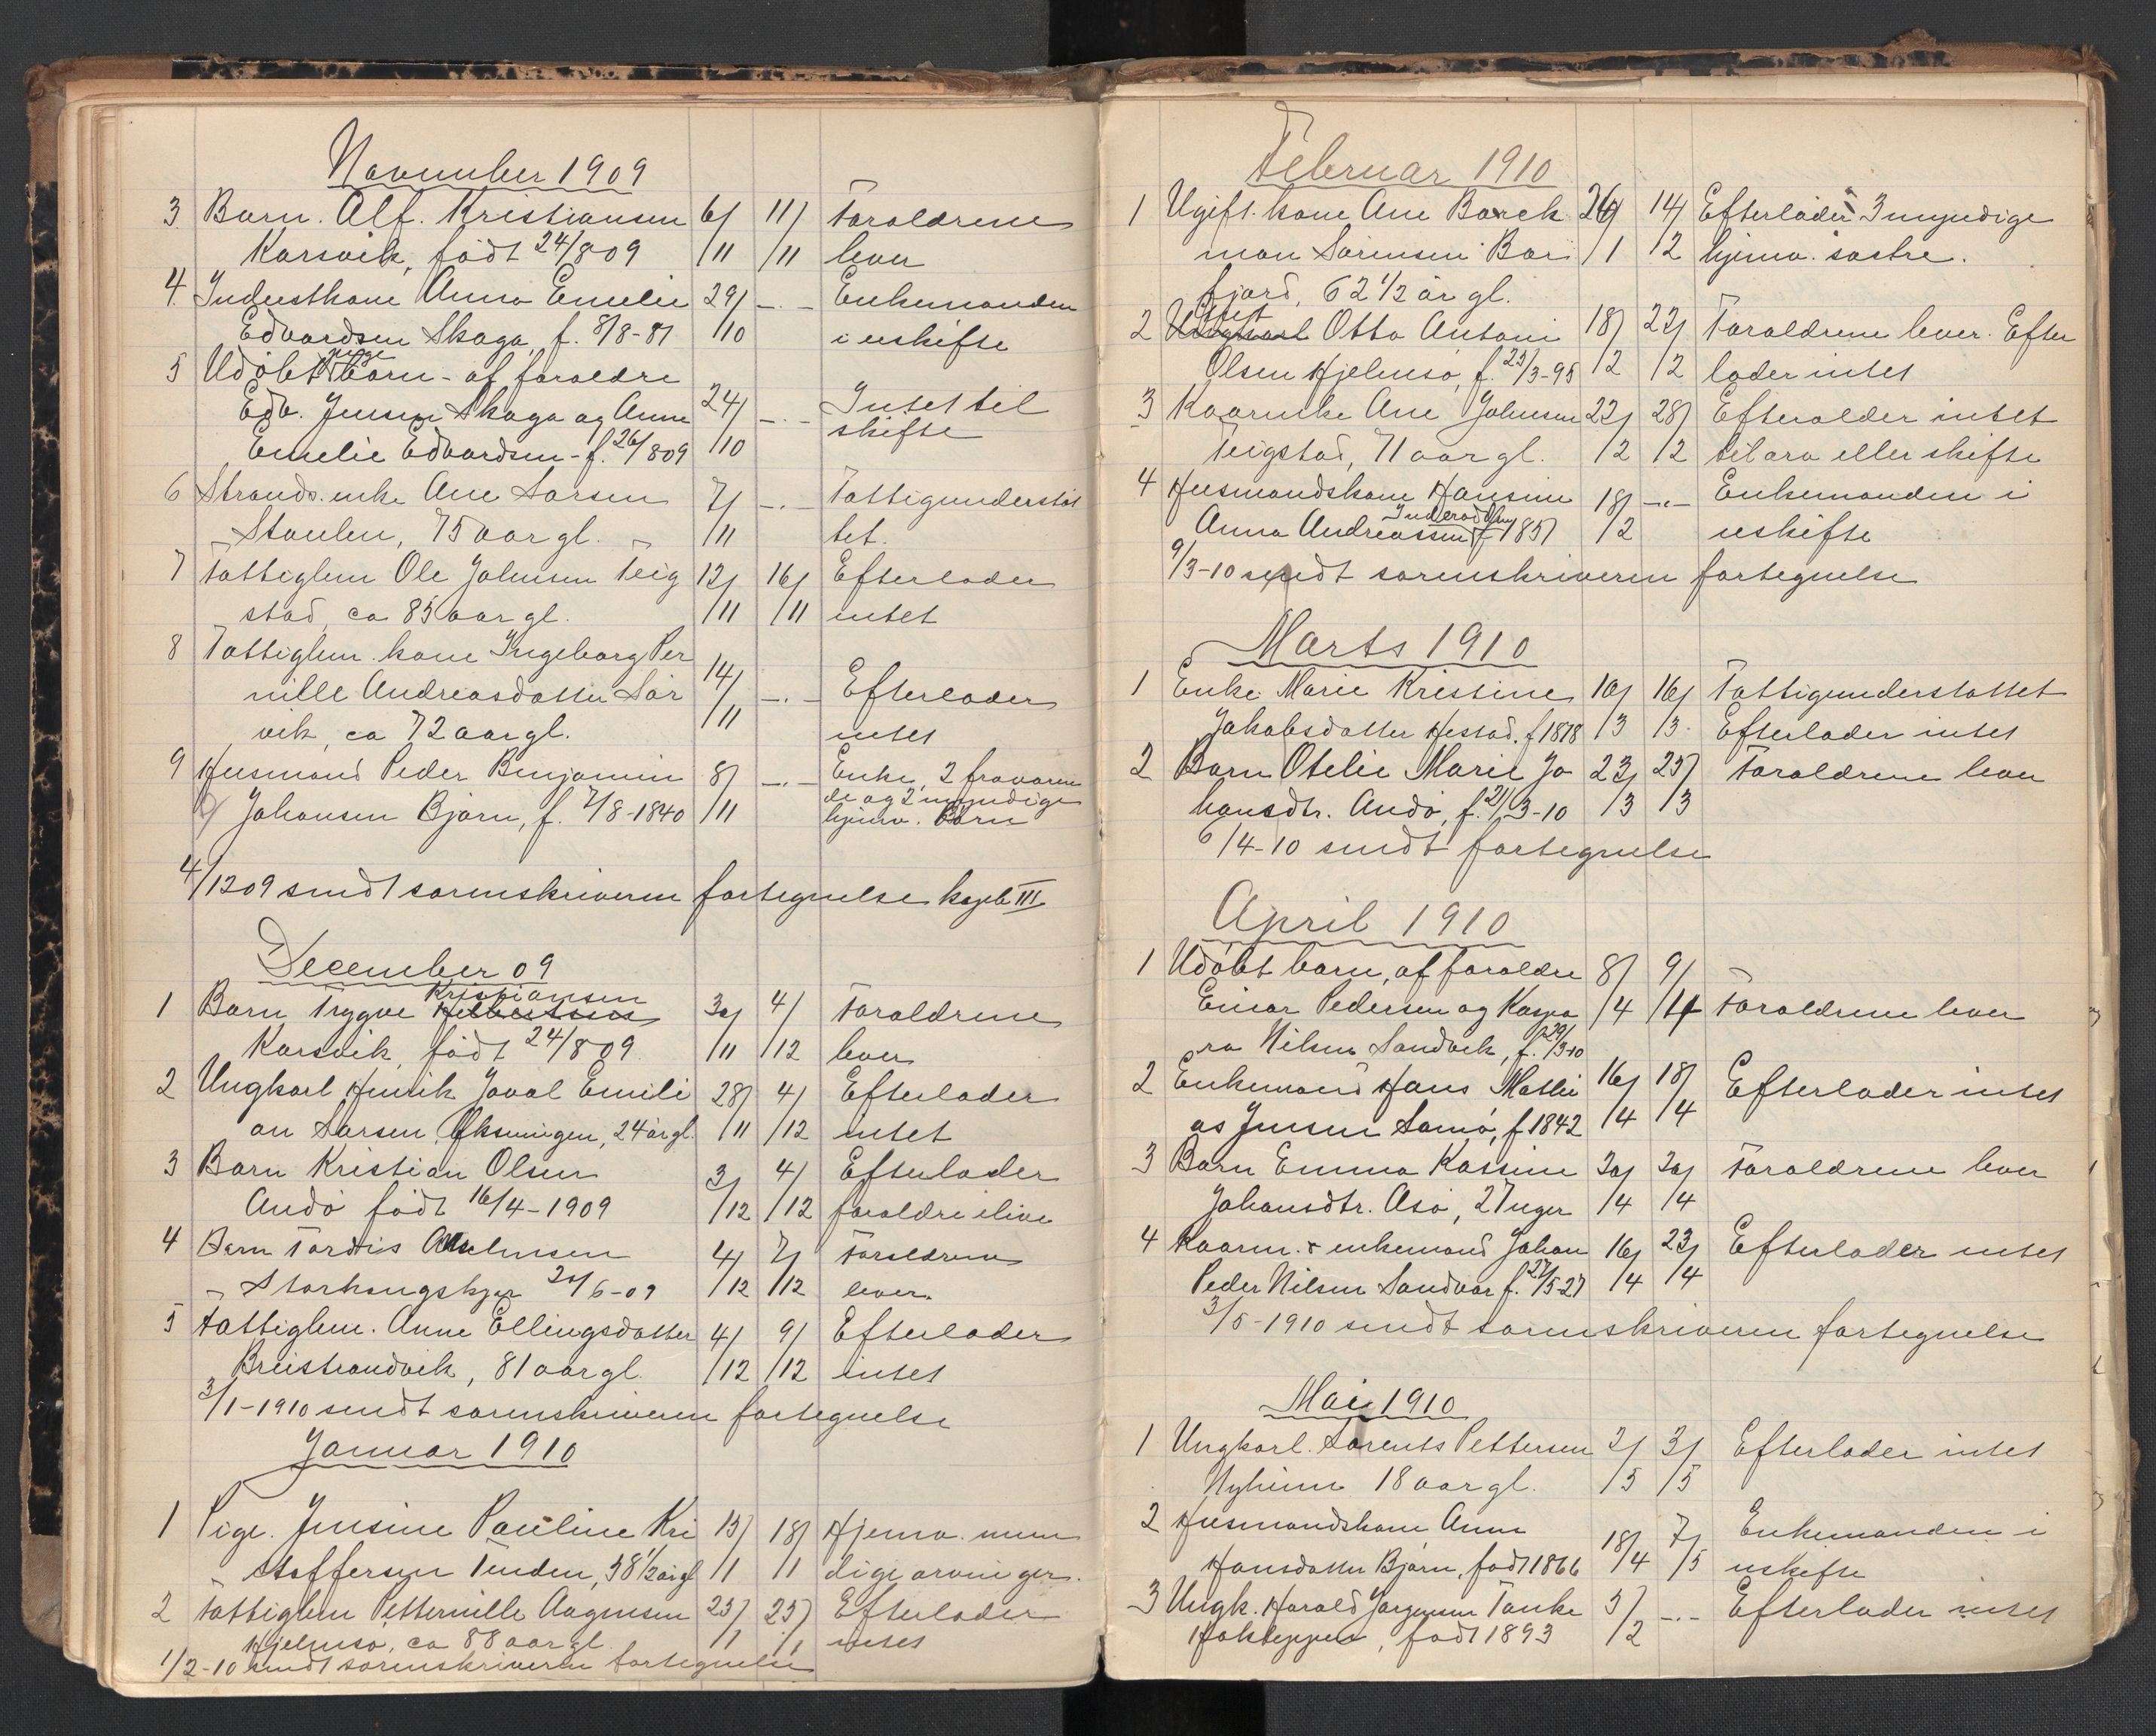 November 1909
3 Barn. Alf. Kristiansen 6/ 11/ Forældrene
Korsvik, født 24/8 09 /11 /11 lever
4 Inderstkone Anna Emelie 29/ -.- Enkemanden
Edvardsen Skaga, f. 8/8-81 /10 i uskifte
5 Udøbt pige barn - af forældre
Edv. Jensen Skaga og Anna 24/ -.- Intet til
Emelie Edvardsen - f. 26/8 09 /10 skifte
6 Strands. enke Ane Larsen 7/ -.- Fattigunderstøt
Staulen, 75 aar gl. /11 tet.
7 Fattiglem Ole Johnsen Teig 12/ 16/ Efterlader
stad, ca 85 aar gl. /11 /11 intet
8 Fattiglem. kone Ingeborg Per
nille Andreasdatter Sør 14/ -.- Efterlader
vik, ca 72 aar gl. /11 intet
9 Husmand Peder Benjamin 8/ -.- Enke, 2 fraværen
Johansen Bjørn, f. 7/8-1840 /11 de og 2 myndige
hjemv. Børn
4/12 09 sendt sorenskriveren fortegnelse kopib III
December 09
1 Barn Trygve Kristiansen 30/ 4/ Forældrene
Korsvik, født 24/8 09 /11 /12 lever
2 Ungkarl Henrik Joval Emili 28/ 4/ Efterlader
an Larsen Øksningen, 24 år gl. /11 /12 intet
3 Barn Kristian Olsen 3/ 4/ Efterlader
Andø født 16/4-1909 /12 /12 forældre ilive
4 Barn Tordis 4/ 7/ Forældrene
Storhaugskjær 20/6-09 /12 /12 lever.
5 Fattiglem. Anne Ellingsdatter 4/ 9/ Efterlader
Breistrandvik, 81 aar gl. /12 /12 intet
3/1-1910 sendt sorenskriveren fortegnelse
Januar 1910
1 Pige. Jensine Pauline Kri 15/ 18/ Hjemv. myn
stoffersen Tenden, 38 1/2 år gl /1 /1 dige arvinger.
2 Fattiglem Petternille Aagensen 23/ 25/ Efterlader
Hjelmsø, ca 88 aar gl. /1 /1 intet
1/2-10 sendt sorenskriveren fortegnelse
Februar 1910
1 Ugift. kone Ane Barek 26/ 14/ Efterlader 3 myndige
man Sørensen Bør /1 /2 hjemv. søstre.
fjord, 62 1/2 år gl.
2 Gift Ungkarl Otto Antoni 18/ 22/ Forældrene lever. Efter
Olsen Hjelmsø, f. 25/3-95 /2 /2 lader intet
3 Kaarenke Ane Johnsen 22/ 28/ Efterlader intet
Teigstad, 71 aar gl. /2 /2 til arv eller skifte
4 Husmandskone Hansine 18/ -.- Enkemanden i
Anna Andreassen f 1857 /2 uskifte
9/3-10 sendt sorenskriveren fortegnelse
Marts 1910
1 Enke Marie Kristine 10/ 16/ Fattigunderstøttet
Jakobsdatter Hestad. f 1818 /3 /3. Efterlader intet
2 Barn Otelie Marie Jo 23/ 25/ Forældrene lever
hansdtr. Andø, f. 21/3-10 /3 /3
6/4-10 sendt fortegnelse
April 1910
1 Udøbt barn, af forældre 8/ 9/
Einar Pedersen og Kaspa /4 /4 Forældrene lever
ra Nilsen Sandvik, f. 29/3-10
2 Enkemand Hans Mathi 16/ 18/ Efterlader intet
as Jensen Sømø, f 1842 /4 /4
3 Barn Emma Kassine 20/ 20/ Forældrene lever
Johansdtr. Asø, 27 uger /4 /4
4 Kaarm. & enkemand Johan 16/ 23/ Efterlader intet
Peder Nilsen Sandvær f. 27/5-27 /4 /4
3/5-1910 sendt sorenskriveren fortegnelse
Mai 1910
1 Ungkarl. Lorents Pettersen 2/ 3/ Efterlader intet
Nyheim 18 aar gl. /5 /5
2 Husmandskone Anne 18/ 7/ Enkemanden i
Hansdatter Bjørn, født 1866 /4 /5 uskifte
3 Ungk. Harald Jørgensen Tanke 5/ -.- Efterlader intet
født 1893 /2